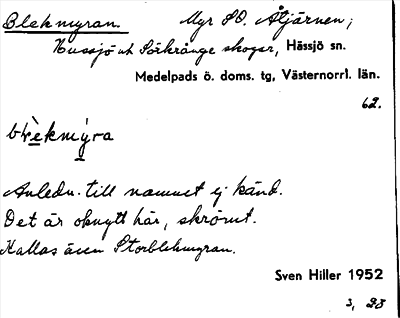 Blekmyran. Myr SO. Åtjärnen,
Hussjö o. Sörkrånge skogar, Hässjö sn.
Medelpads ö. doms. tg, Västernorrl. län.
62.
blèkmýra
Anledn. till namnet ej känd.
Det är oknytt här, skrömt.
Kallas även Storblekmyran.
Sven Hiller 1952
3, 23